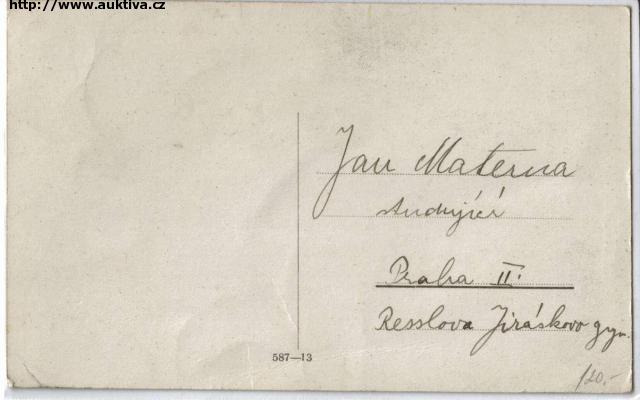 http://www.auktiva.cz
Jan Materna
studující
Praha II.
Resslova Jiráskovo gym.
587—13
120.-